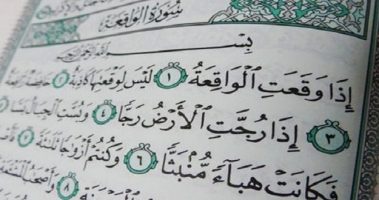 سُورَةُ الوَاقِعَةِ
بِسْمِ ٱللَّهِ ٱلرَّحْمَٰنِ ٱلرَّحِيمِ
إِذَا وَقَعَتِ ٱلْوَاقِعَةُ ١ لَيْسَ لِوَقْعَتِهَا كَاذِبَةٌ ٢ خَافِضَةٌ
٣ إِذَا رُجَّتِ ٱلْأَرْضُ رَجًّا ٤ وَبُسَّتِ ٱلْجِبَالُ
فَكَانَتْ هَبَآءً مُّنۢبَثًّا ٦ وَكُنتُمْ أَزْوَٰجًا ثَلَٰثَةً
٨ وَأَصْحَٰبُ